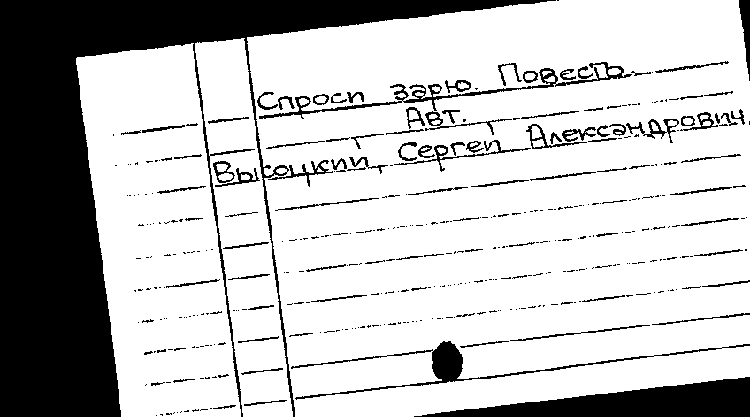 Спроси зарю. Повесть.
Авт.
Высоцкий, Сергей Александрович.